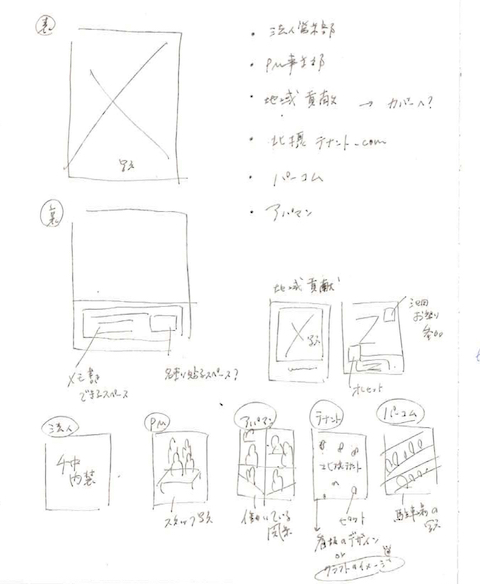 表
・ 法人営業部
・ PM事業部
・ 地域貢献 → カバーへ?
・ 北摂テナント.com
・ パーコム
・ アパマン
写真
裏
メモ書き
できるスペース
名刺貼るスペース?
地域貢献
写真
池田
お祭り
参加
法人
PM
スタッフ写真
アパマン
働いている
風景
テナント
北摂テナント
看板のデザイン
or
クラフトのイメージ
パーコム
駐車場の
写真